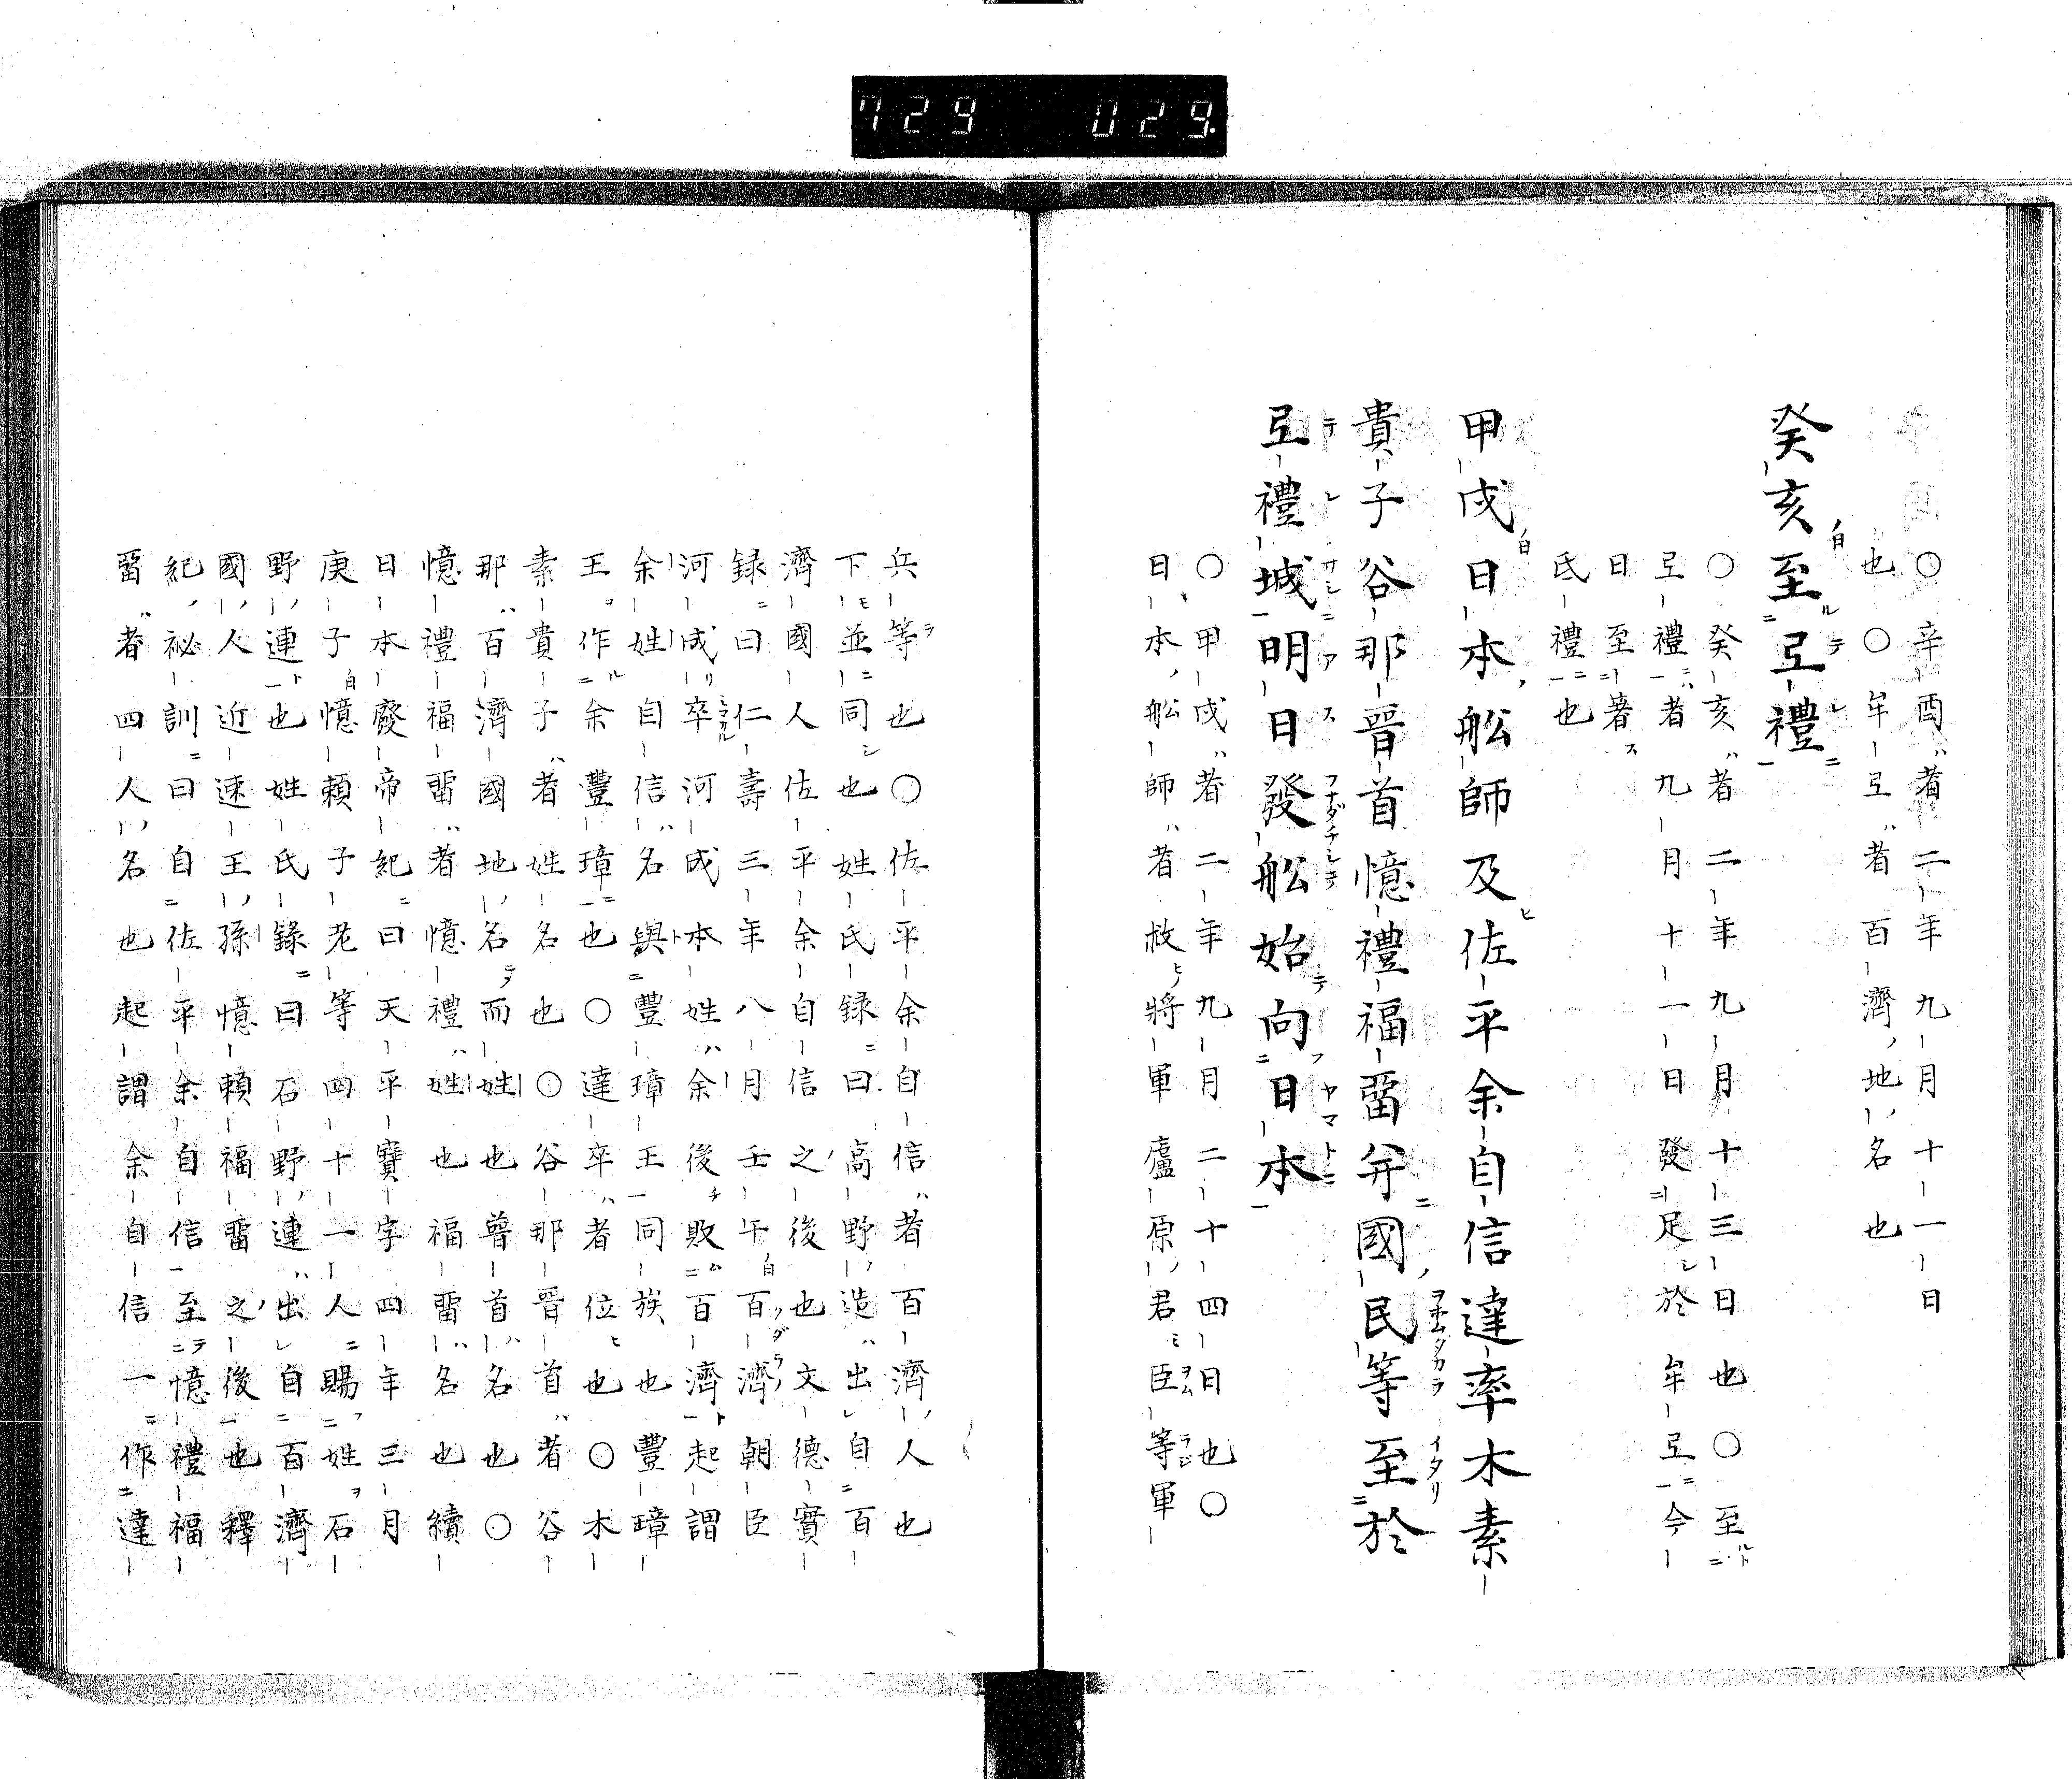 729 029.
○辛酉者二年九月十一日
也○牟弖者百濟地名也
癸亥至弖禮
○癸亥者二年九月十三日也○至
弖禮者九月十一日發足於牟弖今
日至著
氐禮也
甲戌日本舩師及佐平余自信達率木素
貴子谷那晉首憶禮福畱并國民等至於
弖禮城明日發舩始向日本
○甲戌者二年九月二十四日也○
日本舩師者救將軍廬原君臣等軍
兵等也○佐平余自信者百濟人也
下並同也姓氏録曰高野造出自百
濟國人佐平余自信之後也文德實
録曰仁壽三年八月壬午百濟朝臣
河成卒河成本姓余後敗百濟起謂
余姓自信名與豐璋王同族也豐璋
王作余豐璋也○達率者位也○木
素貴子者姓名也○谷那晉首者谷
那百濟國地名而姓也晉首名也○
憶禮福畱者憶禮姓也福畱名也續
日本廢帝紀曰天平寶字四年三月
庚子憶賴子老等四十一人賜姓石
野連也姓氏錄曰石野連出自百濟
國人近速王孫憶賴福畱之後也釋
紀祕訓曰自佐平余自信至憶禮福
畱者四人名也起謂余自信一作達